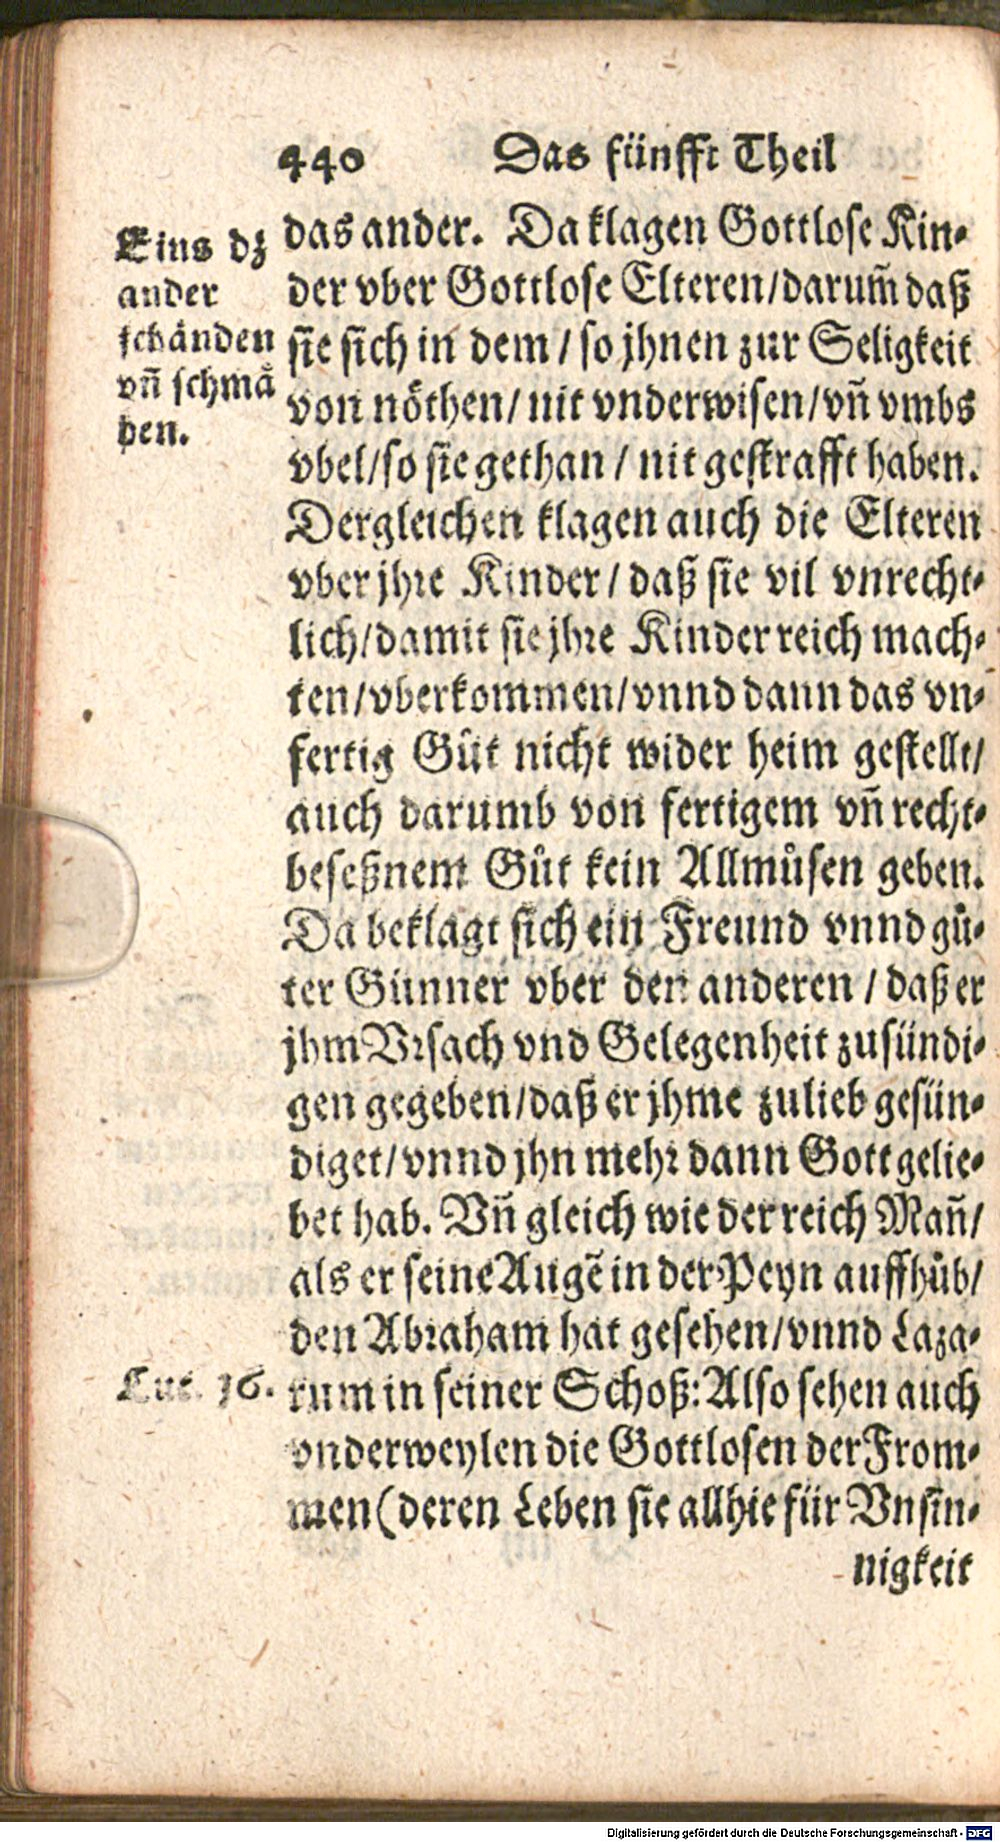 440 Das fünfft Theil
Eins dz
ander
schänden
vñ schmä
hen.
das ander. Da klagen Gottlose Kin-
der vber Gottlose Elteren/darum̃ daß
sie sich in dem / so jhnen zur Seligkeit
von nöthen/ nit vnderwisen/vñ vmbs
vbel/so sie gethan / nit gestrafft haben.
Dergleichen klagen auch die Elteren
vber jhre Kinder / daß sie vil vnrecht-
lich/damit sie jhre Kinder reich mach-
ten/vberkommen/vnnd dann das vn-
fertig Gůt nicht wider heim gestellt/
auch darumb von fertigem vñ recht-
beseßnem Gůt kein Allmůsen geben.
Da beklagt sich ein Freund vnnd gů-
ter Günner vber den anderen / daß er
jhm Vrsach vnd Gelegenheit zusündi-
gen gegeben/daß er jhme zulieb gesün-
diget/vnnd jhn mehr dann Gott gelie-
bet hab. Vñ gleich wie der reich Mañ/
als er seine Augẽ in der Peyn auffhůb/
den Abraham hat gesehen/vnnd Laza-
Luc. 16.
rum in seiner Schoß: Also sehen auch
vnderweylen die Gottlosen der From-
men (deren Leben sie allhie für Vnsin-
nigkeit
Digitalisierung gefördert durch die Deutsche Forschungsgemeinschaft - DFG